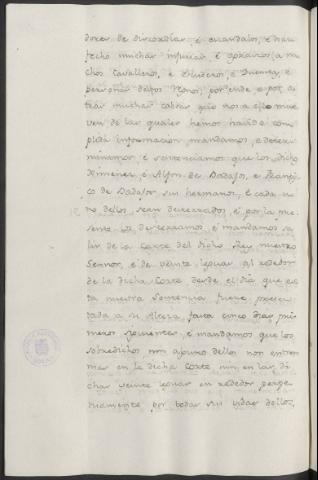 dores de discordias, é escandalos, é han
fecho muchas injurias é agravios a mu
chos Cavalleros, é Escuderos, é Duenas, é
personas destos Reynos; por ende e por o
tras muchas cabsas que nos a ello mue
ven de las quales hemos havido com
plida informacion mandamos, e deter
minamos, é sentenciamos que los dichos
Ximenez, é Alfon de Badajos, e Francis
co de Badajos sus hermanos, é cada u
no dellos, sean desterrados, é por la pre
sente los desterramos, é mandamos sa
lir de la Corte del dicho Rey nuestro
Sennor, é de veinte leguas al rededor
de la dicha Corte desde el dia que es
ta nuestra Sentencia fuere presen
tada a su Alteza, fasta cinco dias pri
meros siguientes, é mandamos que los
sobredichos, nin alguno dellos non entren
mas en la dicha Corte, nin en las di
chas veinte leguas en rededor perpe
tuamente por todas sus vidas dellos,